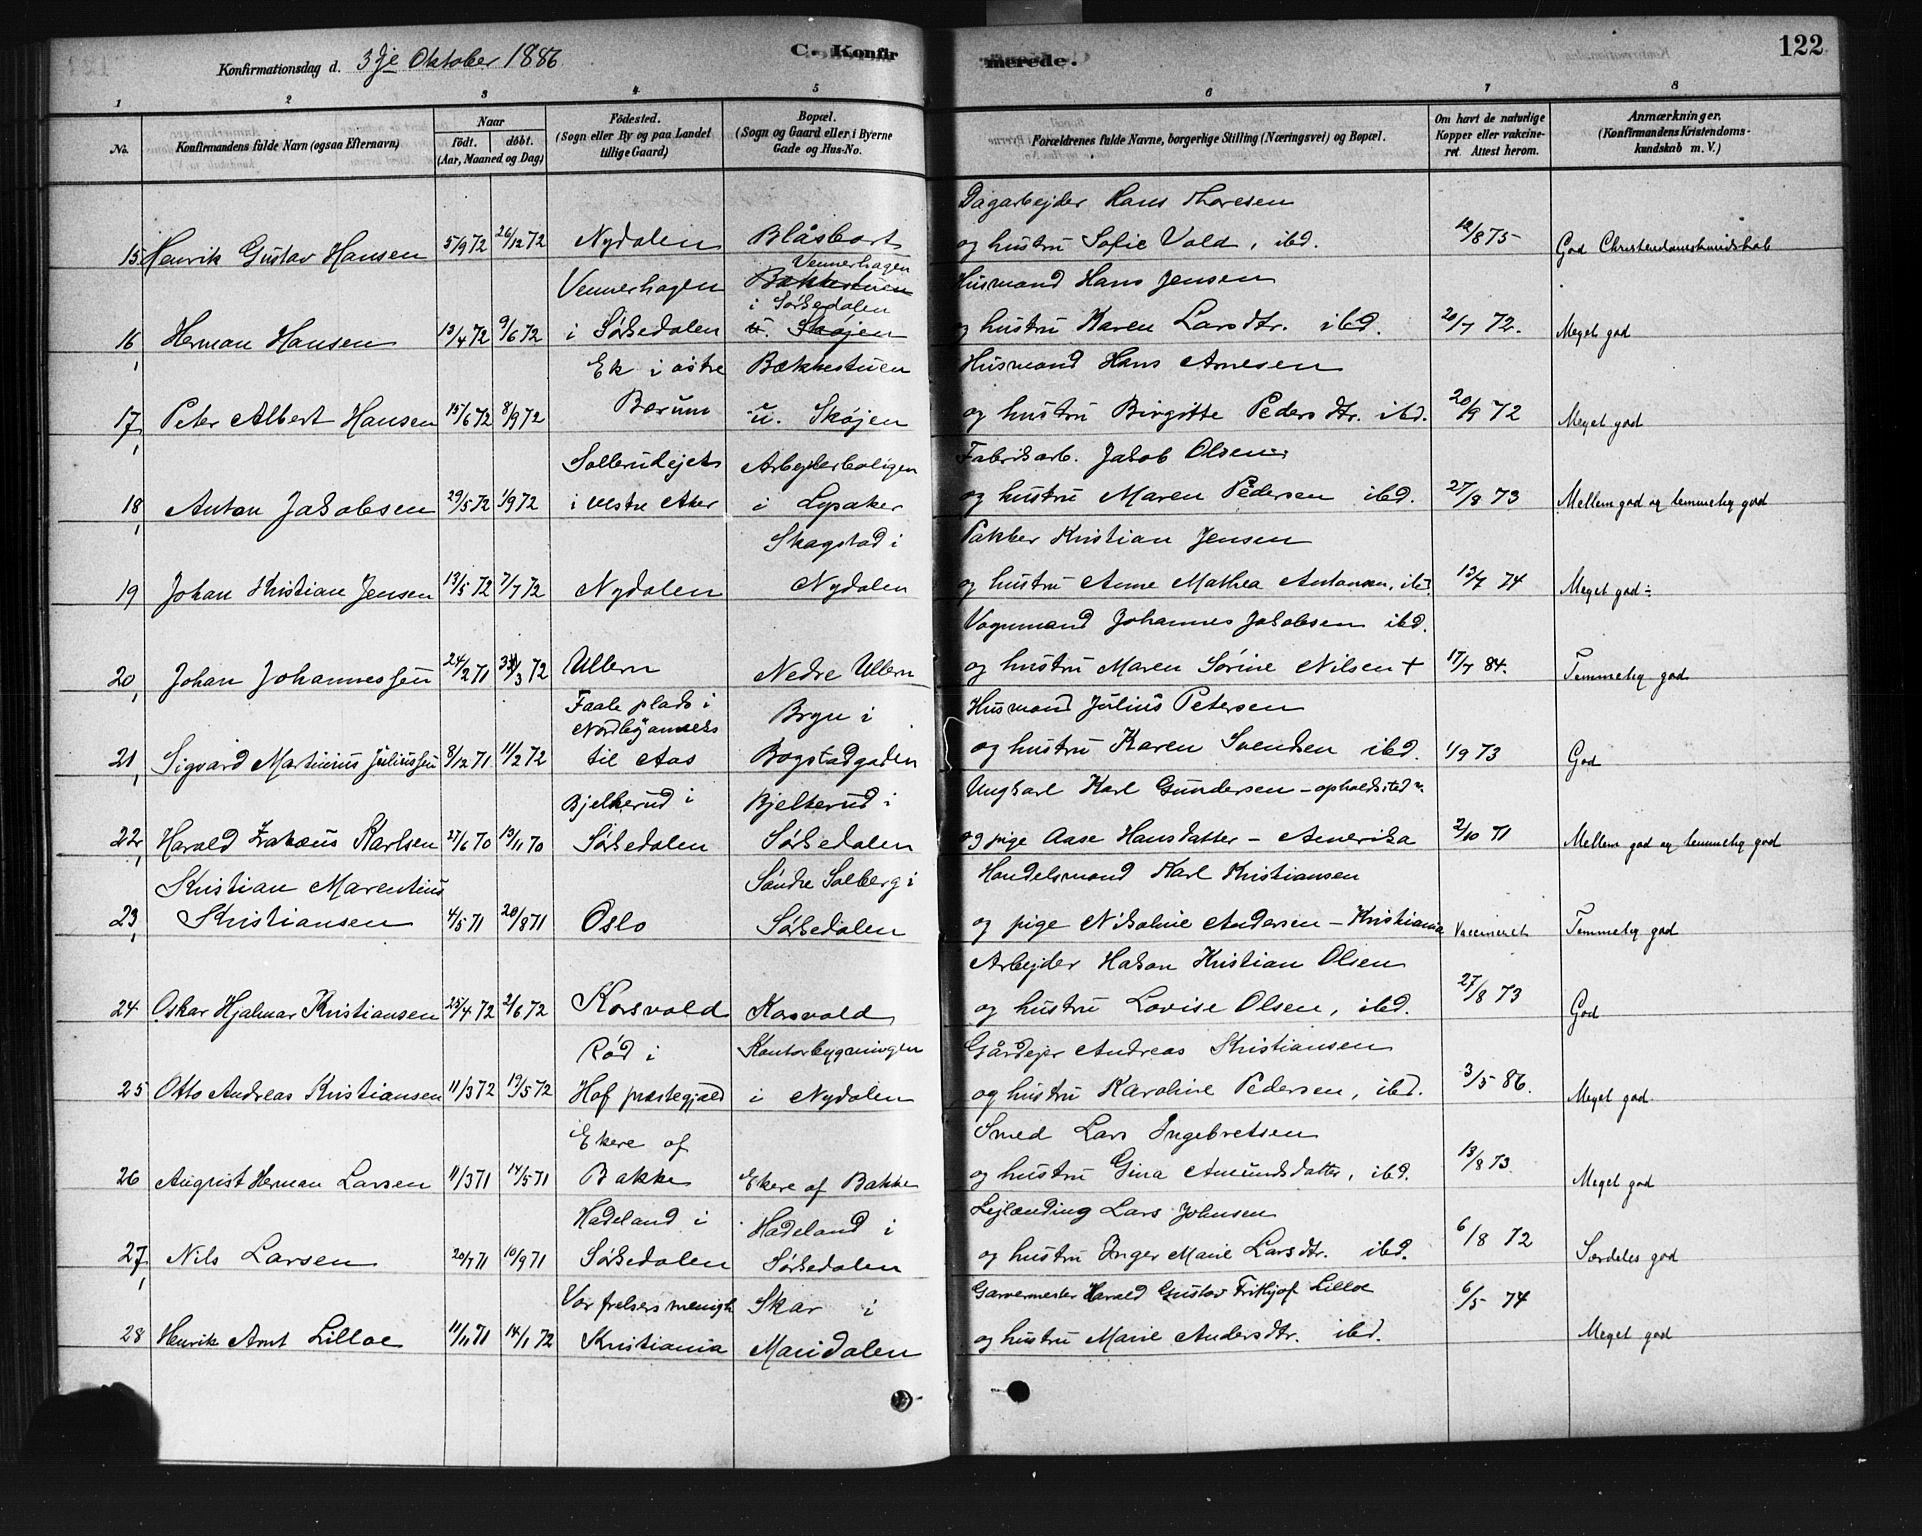 Konfirmationsdag d. 3dje Oktober 1886
C. Konfirmerede.
122
1 2 3 4 5 6 7 8
No. Konfirmandens fulde Navn (ogsaa Efternavn) Naar født. døbt. (Aar, Maaned og Dag) Födested. (Sogn eller By og paa Landet tillige Gaard) Bopæl. (Sogn og Gaard eller i Byerne Gade og Hus-No. Forældrenes fulde Navne, borgerlige Stilling (Næringsvei) og Bopæl. Om havt de naturlige Kopper eller vaccineret. Attest herom. Anmærkninger. (Konfirmandens Kristendomskundskab m. V.)
Dagarbejder Hans Thoresen
15 Henrik Gustav Hansen 5/9 72 26/12 72 Nydalen Blåsbort og hustru Sofie Vold, ibd. 12/8 75 God Christendomskundskab
Vennerhagen
Vennerhagen Bækkestuen Husmand Hans Jensen
i Sørkedalen
16, Herman Hansen 13/4 72 9/6 72 i Sørkedalen u. Skøjen og hustru Karen Larsdtr. ibd. 20/7 72. Meget god
Ek i østre Bækkestuen Husmand Hans Arnesen
17, Peter Albert Hansen 15/6 72 8/9 72 Bærum u. Skøjen og hustru Birgitte Pedersdtr. ibd. 20/9 72 Meget god
Sollerudejet Arbejderboligen Fabrikarb. Jakob Olsen
18, Anton Jakobsen 29/5 72 1/9 72 i vestre Aker i Lysaker og hustru Maren Pedersen ibd. 27/8 73 Mellem god og temmelig god
Skagstad i Pakker Kristian Jensen
19 Johan Kristian Jensen 13/5 72 7/7 72 Nydalen Nydalen og hustru Anne Mathea Antonsen, ibd. 13/7 74 Meget god ÷
Vognmand Johannes Jakobsen ibd.
20, Johan Johannessen 24/2 71 31/3 72 Ullern Nedre Ullern og hustru Maren Sørine Nilsen + 17/7 84. Temmelig god
Faale plads i Husmand Julius Petersen
Nordby anneks Bryn i
21, Sigvard Martinius Juliussen 8/12 71 11/2 72 til Aas Bogstadgaden og hustru Karen Svendsen ibd. 1/9 73 God
Bjelkerud i Bjelkerud i Ungkarl Karl Gundersen – opholdsted
22, Harald Zakæus Karlsen 27/6 70 13/11 70 Sørkedalen Sørkedalen og pige Aase Hansdatter – Amerika 2/10 71 Mellem god og temmelig god
Kristian Marentius Søndre Solberg i Handelsmand Karl Kristiansen
23, Kristiansen 4/5 71 20/8 71 Oslo Sørkedalen og pige Nikoline Andersen – Kristiania Vaccineret Temmelig god
Arbejder Hakon Kristian Olsen
24 Oskar Hjalmar Kristiansen 25/4 72 2/6 72 Korsvold Korsvold og hustru Lovise Olsen, ibd. 27/8 73 God
Rød i Kontorbygningen Gårdejer Andreas Kristiansen
25 Otto Andreas Kristiansen 11/3 72 19/5 72 Hof præstegjæld i Nydalen og hustru Karoline Pedersen, ibd. 3/5 86. Meget god
Ekere af Smed Lars Ingebretsen
26 August Herman Larsen 11/3 71 14/5 71 Bakke Ekere af Bakke og hustru Gina Amundsdatter, ibd. 13/8 73. Meget god
Hadeland i Hadeland i Lejlænding Lars Johnsen
27, Nils Larsen 20/7 71 10/9 71 Sørkedalen Sørkedalen og hustru Inger Marie Larsdtr. ibd. 6/8 72 Særdeles god
Vor frelsers menigh. Skar i Garvermester Harald Gustav Frithjof Lilloe
28 Henrik Arnt Lilloe 11/11 71 14/1 72 Kristiania Maridalen og hustru Marie Andersdtr. ibd. 6/5 74 Meget god